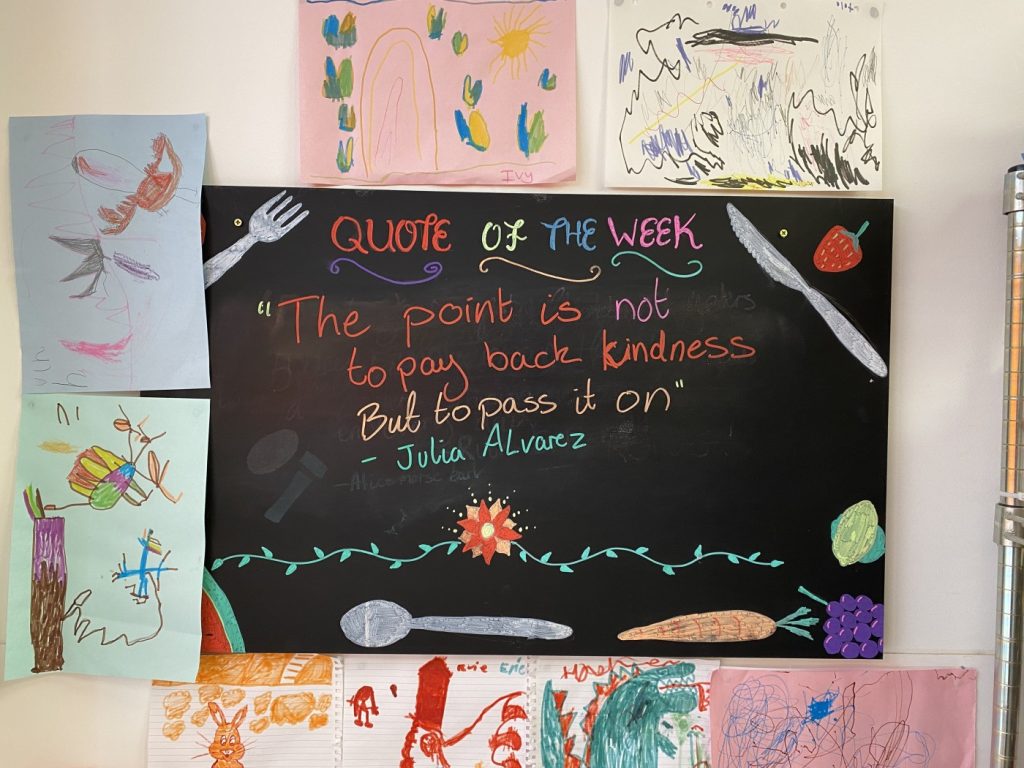 IVY
QUOTE OF THE WEEK
"The point is not
to pay back kindness
But to pass it on"
- Julia ALvarez
Evie Evie